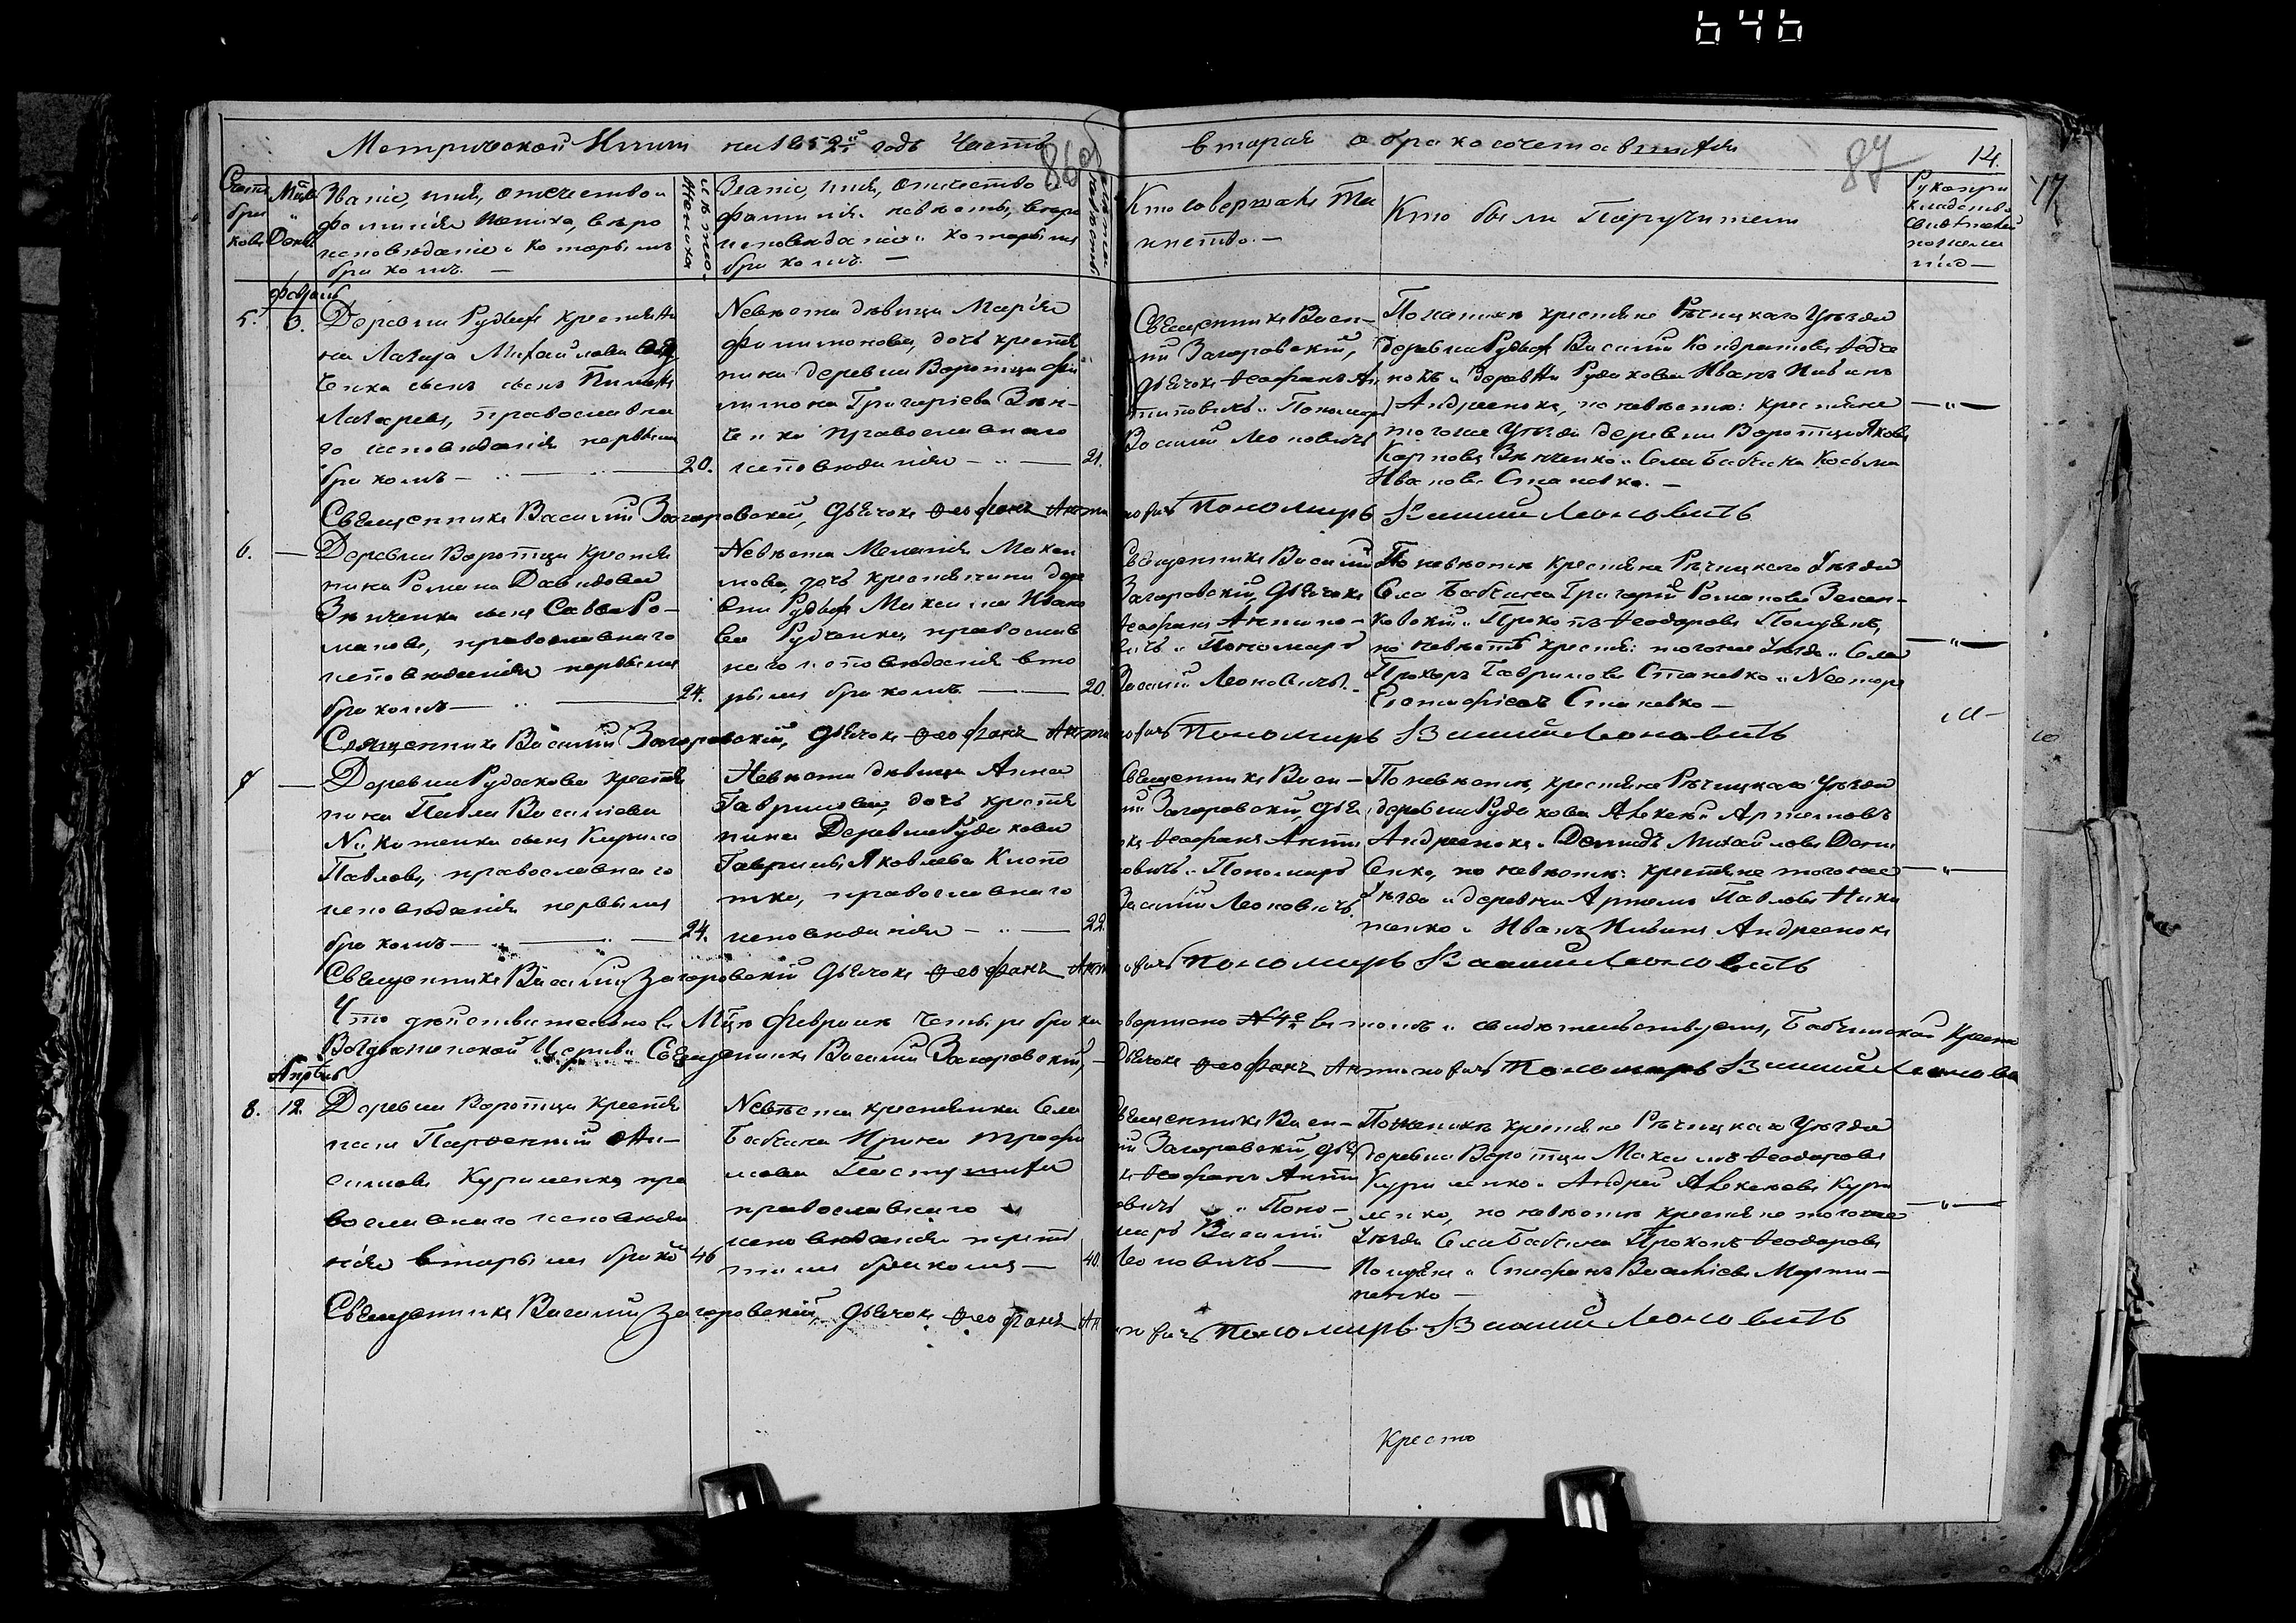 646
Метрической Книги на 1852й годъ Часть
86об
вторая о бракосочетавшихся
87
14.
17
Счетъ браковъ
Мѣс. и День
Званіе, имя, отчество и
фамилія жениха, вѣро
исповѣданіе и которымъ
бракомъ. —
жениха
Званіе, имя, отчество
фамилія невѣсты, вѣро
исповѣданіе и которымъ
бракомъ. —
невѣсты
Кто совершалъ Та
инство. —
Кто были Поручители
Рукопри
кладство
свидѣтелей
по желанію
Февраль
5. 3. Деревни крестьяни
на Лазаря Михайлова
сынъ
Лазаревъ, православна
го исповѣданія первымъ
бракомъ — 20.
Невѣста дѣвица Марія
Филимонова, дочь крестья
нина деревни Воротца Фи
лимона Григоріева Зѣн-
ченка православнаго
исповѣданія — 21.
Священникъ Васи-
лій Загоровскій,
дьячокъ Ѳеофанъ Ан
типовичъ и Пономарь
Василій Леоновичъ
По женихѣ крестьяне Рѣчицкаго Уѣзда
деревни Василій Кондратовъ
и деревни Рудакова Иванъ
Андреенокъ, по невѣстѣ: крестьяне
того же Уѣзда деревни Воротца Яковъ
Карповъ Зѣнченко и Села Бабчина Косьма
Ивановъ Станевко. —
Священникъ Василій Загоровскій, Дьячокъ Ѳеофанъ Антиповичъ Пономарь Василій Леоновичъ
6. — Деревни Воротца крестья
нина Романа Давидова
Зѣнченка сынъ Савва Ро-
мановъ, православнаго
исповѣданія первымъ
бракомъ — 24.
Невѣста Меланія Макси
мова, дочь крестьянина дере
вни Максима Ивано
ва Рудченка, православ
наго исповѣданія вто
рымъ бракомъ — 20.
Священникъ Василій
Загоровскій, Дьячокъ
Ѳеофанъ Антипо-
вичъ и Пономарь
Василій Леоновичъ.
По невѣстѣ крестьяне Рѣчицкаго Уѣзда
Села Бабчина Григорій Романовъ Зелен-
ковскій и Прокопъ Ѳеодоровъ
по невѣстѣ крестья: того же Уѣзда и Села
Прохоръ Гавриловъ Станевко и Несторъ
Станевко —
Священникъ Василій Загоровскій, Дьячокъ Ѳеофанъ Антиповичъ Пономарь Василій Леоновичъ
7 — Деревни Рудакова крестья
нина Павла Василіева
Никитенка сынъ Кирило
Павловъ, православнаго
исповѣданія первымъ
бракомъ — 24.
Невѣста дѣвица Анна
Гаврилова, дочь крестья
нина Деревни Рудакова
Гаврила Яковлева
православнаго
исповѣданія — 22.
Священникъ Васи-
лій Загоровскій, дья
чокъ Ѳеофанъ Анти
повичъ и Пономарь
Василій Леоновичъ.
По невѣстѣ, крестьяне Рѣчицкаго Уѣзда
деревни Рудакова Алексѣй Артемовъ
Андреенокъ и Михайловъ Дани
сенко, по невѣстѣ: крестьяне того же
Уѣзда и деревни Артемъ Павловъ Ники
тенко и Иванъ Андреенокъ
Священникъ Василій Загоровскій Дьячокъ Ѳеофанъ Антиповичъ Пономарь Василій Леоновичъ
Что дѣйствительно въ Мцѣ Февралѣ четыре брака совершено № 4е въ томъ и свидѣтельствуемъ, Бабчинской Кресто
Воздвиженской Церкви Священникъ Василій Загоровскій, — Дьячокъ Ѳеофанъ Антиповичъ Пономарь Василій Леонови
Апрѣль
8. 12. Деревни Воротца крестья
нинъ Парѳеній
Куриленко пра
вославнаго исповѣда
нія вторымъ бракомъ 46
Невѣста крестьянка Села
Бабчина Ирина Трофи
мова
православнаго
исповѣданія треть
имъ бракомъ — 40.
Священникъ Васи-
лій Загоровскій, дья
чокъ Ѳеофанъ Анти
повичъ и Поно-
марь Василій
Леоновичъ —
По женихѣ крестьяне Рѣчицкаго Уѣзда
деревни Воротца Максимъ Ѳеодоровъ
Куриленко и Андрей Алексѣевъ Кури
ленко, по невѣстѣ крестьяне того же
Уѣзда Села Бабчина Прокопъ Ѳеодоровъ
и Стефанъ Василіевъ Марти-
ненко —
Священникъ Василій Загоровскій, Дьячокъ Ѳеофанъ Антиповичъ Пономарь Василій Леоновичъ
Кресто